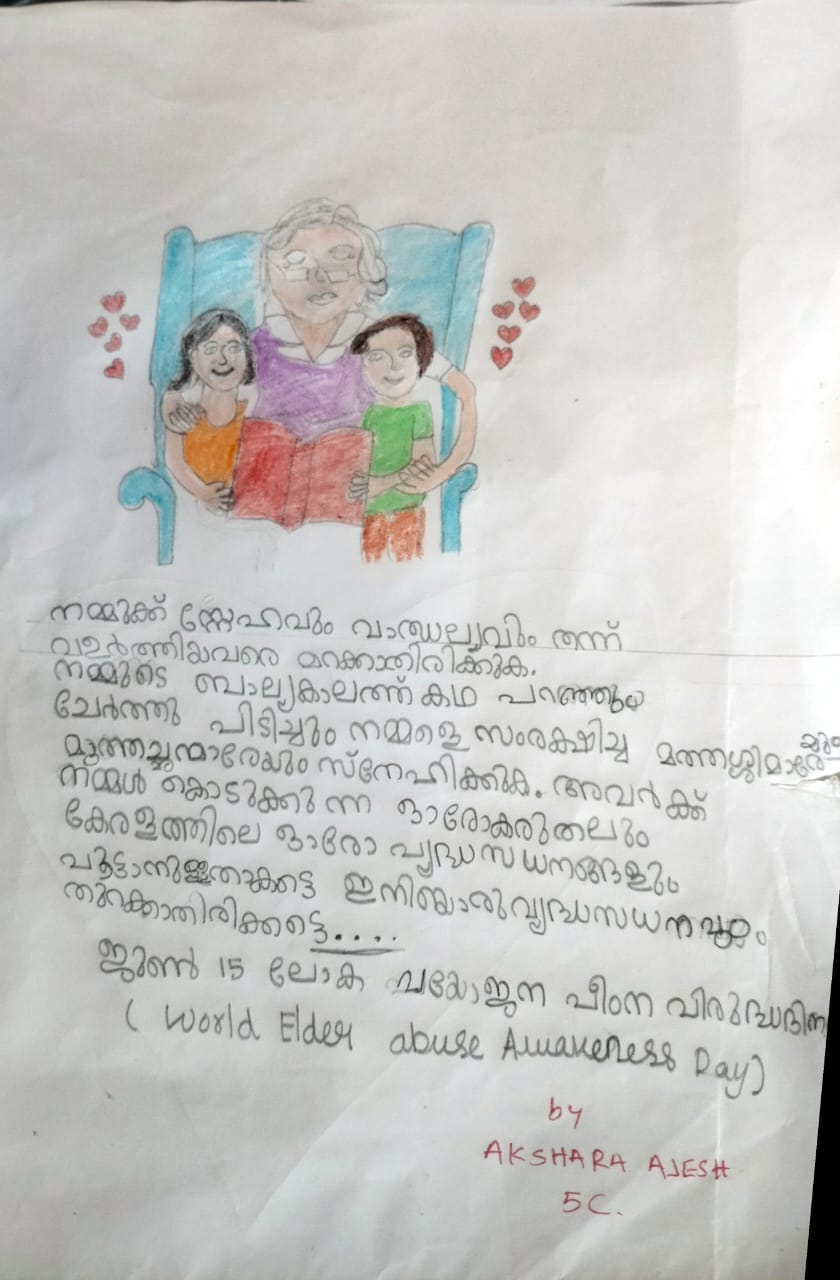 നമ്മുക്ക് സ്നേഹവും വാത്സല്യവിും തന്ന്
വളർത്തിയവരെ മറക്കാതിരിക്കുക.
നമ്മുടെ ബാല്യകാലത്ത് കഥ പറഞ്ഞും
ചേർത്തു പിടിച്ചും നമ്മളെ സംരക്ഷിച്ച മത്തശ്ശിമാരേയും
മുത്തച്ഛന്മാരേയും സ്നേഹിക്കുക. അവർക്ക്
നമ്മൾ കൊടുക്കുന്ന ഓരോകരുതലും
കേരളത്തിലെ ഓരോ വൃദ്ധസധനങ്ങളും
പൂട്ടാനുള്ളതാകട്ടെ ഇനിയൊരുവൃദ്ധസധനവും
തുറക്കാതിരിക്കട്ടെ....
ജൂൺ 15 ലോക വയോജന പീഠന വിരുദ്ധദിന
( World Elder abuse Awareness Day)
by
AKSHARA AJESH
5C.